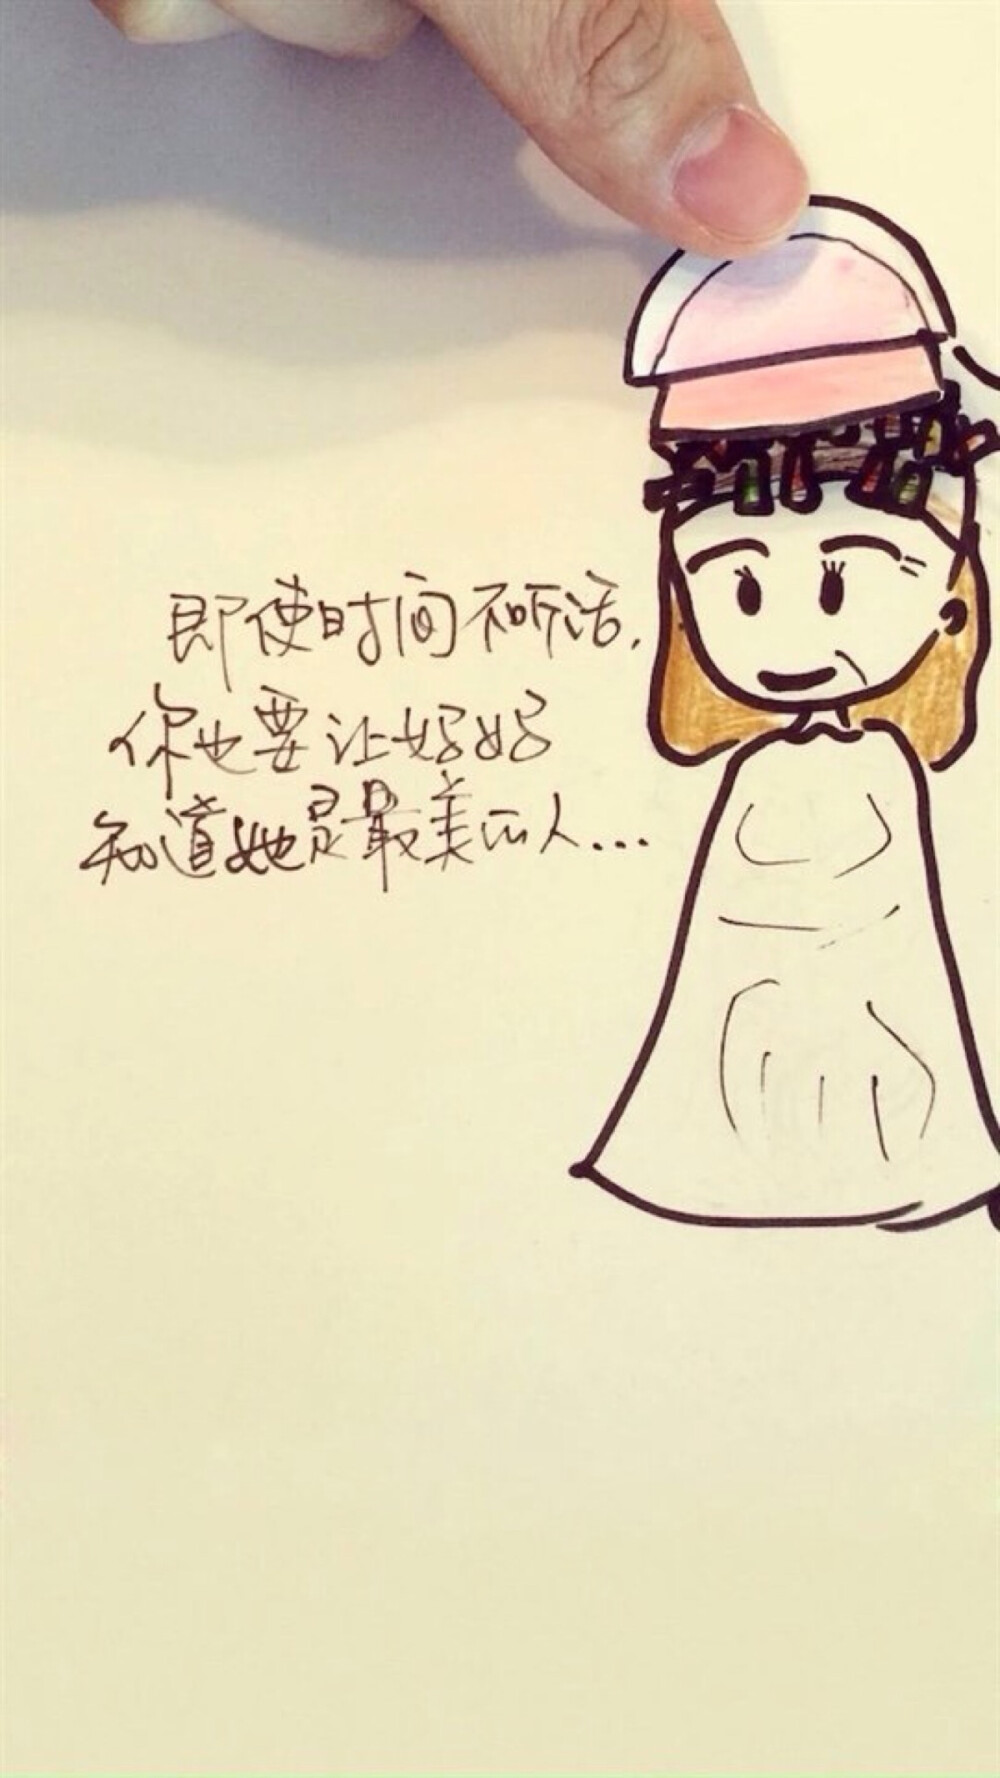 即使时间不听话，
你也要让好好
知道她是最美的人...